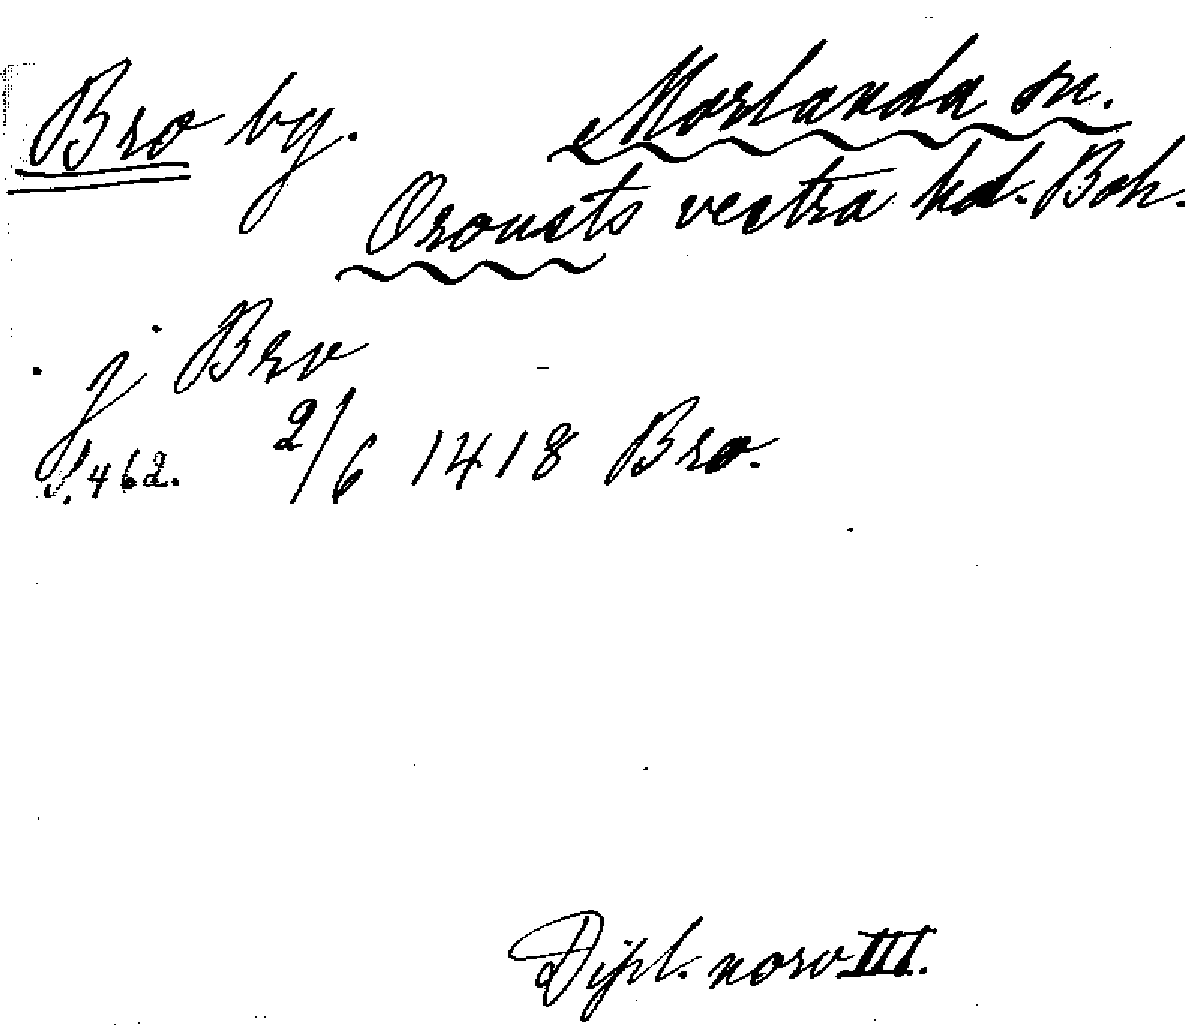 Bro by. Morlanda sn.
Orousts vestra hd. Boh.
j Bro
S. 462. 2/6 1418 Bro.
Dipl. norv III.